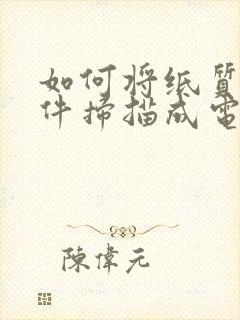 如何将纸質
件掃描成電
陳偉元